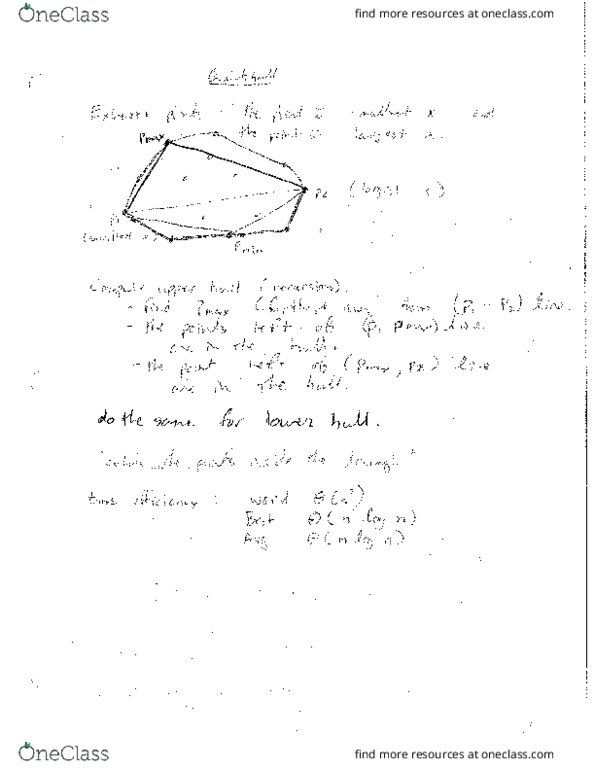 OneClass
find more resources at oneclass.com
Quickhull
Extreme points the point smallest x and
the point largest x.
Pmax
P2
P1
Pmin
Compute upper hull (recursion).
- find Pmax (P1 - P2) line.
- the points left of (P1 Pmax) line
are in the hull.
- the point left of (Pmax, P2) line
are in the hull.
do the same for lower hull.
points inside the triangle"
time efficiency : worst Θ(n²)
Best Θ(n log n)
Avg Θ(n log n)
OneClass
find more resources at oneclass.com